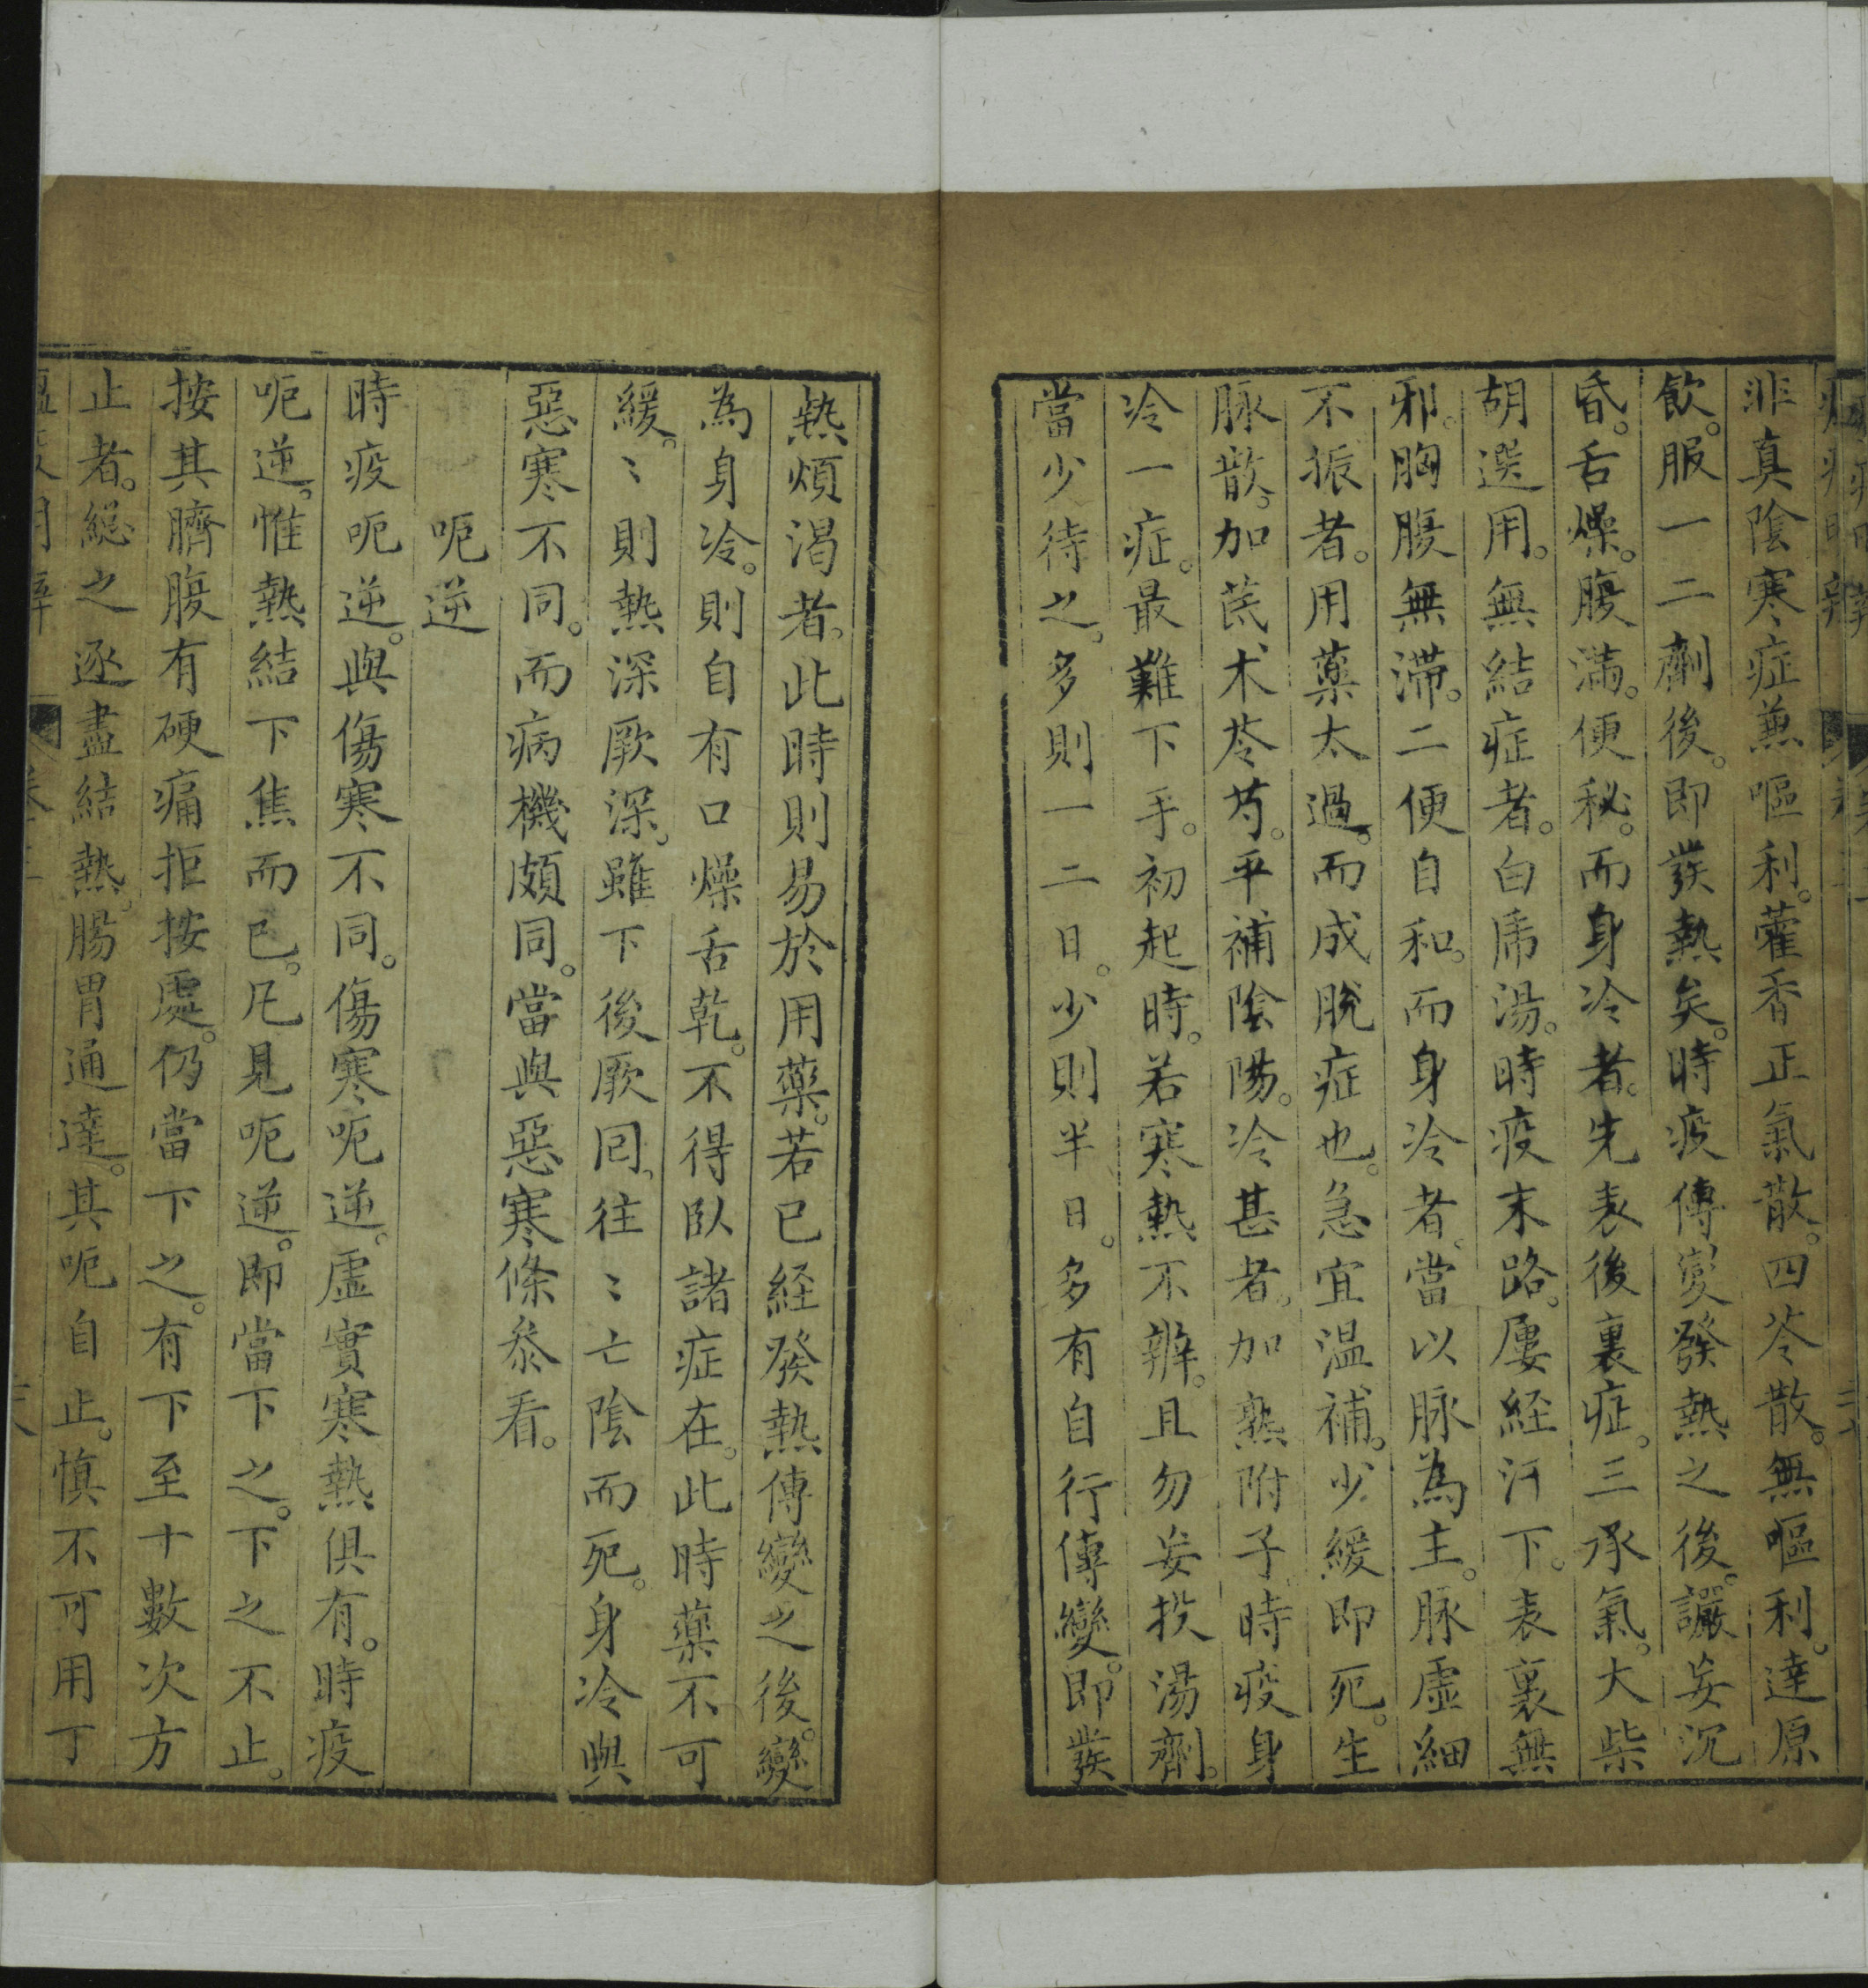 非真陰寒症兼嘔利。藿香正氣散。四苓散。無嘔利。達原
飲。服一二劑後。即發熱矣。時疫傳變發熱之後。讝妄沉
昏。舌燥。腹滿。便秘。而身冷者。先表後裏症。三承氣。大柴
胡選用。無結症者。白虎湯。時疫末路。屢経汗下。表裏無
邪。胸腹無滯。二便自和。而身冷者。當以脉為主。脉虛細
不振者。用藥太過。而成脫症也。急宜温補。少緩即死。生
脉散。加茋、术苓芍。平補陰陽。冷甚者。加熟附子時疫身
冷一症。最難下手。初起時。若寒熱不辨。且勿妄投湯劑。
當少待之。多則一二日。少則半日。多有自行傳變。即發
熱煩渴者。此時則易於用藥。若已経發熱傳變之後。變
為身冷。則自有口燥舌乾。不得臥諸症在。此時藥不可
緩。〻則熱深厥深。雖下後厥回、往〻亡陰而死。身冷與
惡寒不同。而病機頗同。當與惡寒條叅看。
呃逆
時疫呃逆。與傷寒不同。傷寒呃逆。虛實寒熱俱有。時疫
呃逆。惟熱結下焦而已。凡見呃逆。即當下之。下之不止。
按其臍腹有硬痛拒按處。仍當下之。有下至十數次方
止者。緫之逐盡結熱。腸胃通達。其呃自止。慎不可用丁